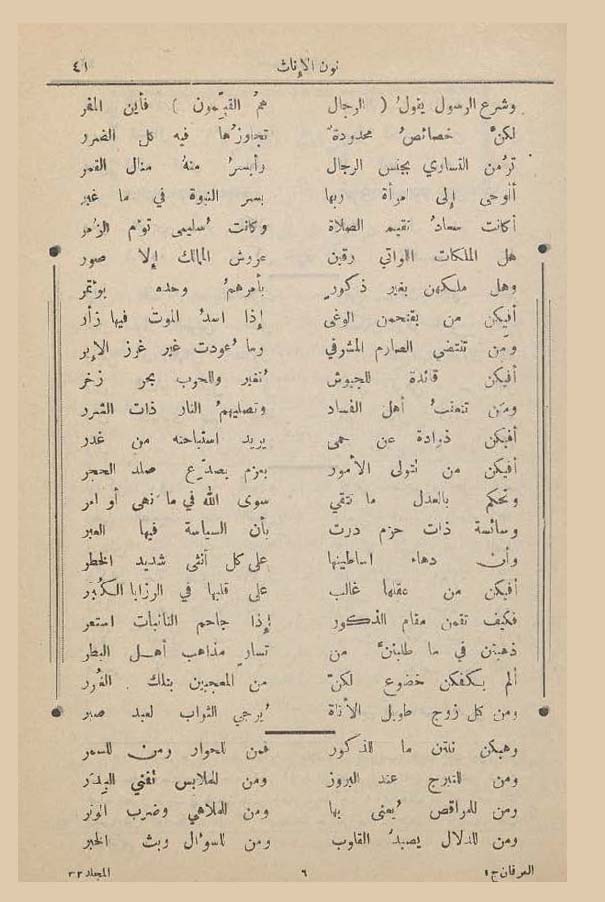 نون الإناث ٤١
وشرع الرسول يقول ( الرجال هم القيّمون ) فأين المفر
لكنّ خصائص محدودة تجاوزها فيه كل الضرر
ترمن التساوي بجنس الرجال وأيسر منه منال القمر
أأوحى إلى امرأة ربها بسر النبوة في ما غبر
أكانت سعاد تقيم الصلاة وكانت سليمى تؤم الزمر
هل الملكات اللواتي رقين عروش الممالك إلا صور
وهل ملكهن بغير ذكور بأمرهم وحده يؤتمر
أفيكن من يقتحمن الوغى إذا اسد الموت فيها زأر
ومن تنتضي الصارم المشرفي وما عودت غير غرز الإبر
أفيكن قائدة للجيوش تغير والحرب بحر زخر
ومن تتعقب أهل الفساد وتصليهم النار ذات الشرر
أفيكن ذوادة عن حمى يريد استباحته من غدر
أفيكن من تتولى الأمور بعزم يصدّع صلد الحجر
وتحكم بالعدل ما تتقي سوى الله في ما نهى أو امر
وسائسة ذات حزم درت بأن السياسة فيها العبر
وأن دهاء اساطينها على كل أنثى شديد الخطر
أفيكن من عقلها غالب على قلبها في الرزايا الكُبَر
فكيف تقمن مقام الذكور إذا جاحم النائبات استعر
ذهبتن في ما طلبتنّ من تساوٍ مذاهب أهل البطر
ألم يكفكن خضوع لكنّ من المعجبين بتلك الغُرر
ومن كل زوج طويل الأناة يُرجي الثواب لعبد صبر
وهبكن نلتن ما للذكور فمن للحوار ومن للسمر
ومن للتبرج عند البروز ومن للملابس تفني البِدَر
ومن للمراقص يُعنى بها ومن للملاهي وضرب الوتر
ومن للدلال يصيد القلوب ومن للسؤال وبث الخبر
العرفان ج١ ٦ المجلد ٣٣